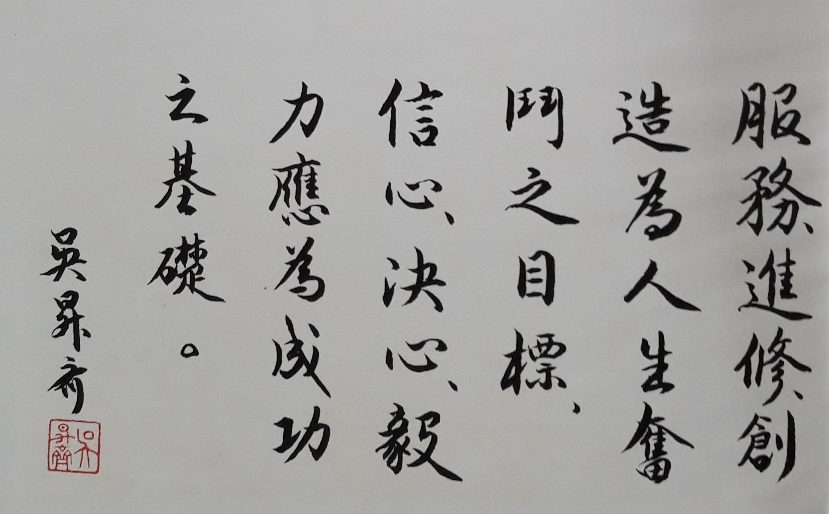 服務、進修、創
造為人生奮
鬥之目標、
信心、決心、毅
力應為成功
之基礎。
吳昇齊
吳昇齊